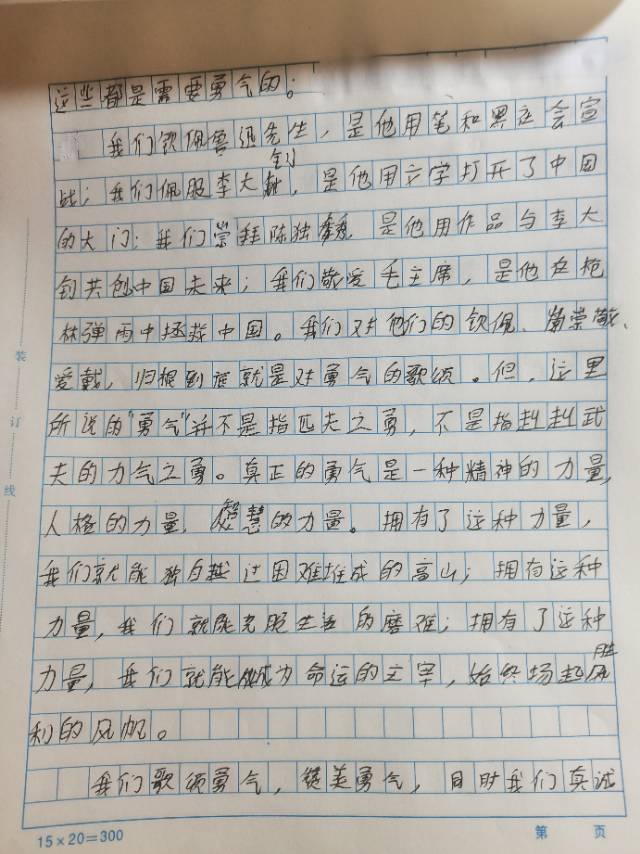 这些都是需要勇气的：
我们钦佩鲁迅先生，是他用笔和黑社会宣
战；我们佩服李大钊，是他用文字打开了中国
的大门；我们崇拜陈独秀，是他用作品与李大
钊共创中国未来；我们敬爱毛主席，是他在枪
林弹雨中拯救中国。我们对他们的钦佩、崇敬、
爱戴，归根到底就是对勇气的歌颂。但，这里
所说的“勇气”并不是指匹夫之勇，不是指赳赳武
夫的力气之勇。真正的勇气是一种精神的力量，
人格的力量，智慧的力量。拥有了这种力量，
我们就能独自越过困难堆成的高山；拥有这种
力量，我们就能克服生活的磨难；拥有了这种
力量，我们就能成为命运的主宰，始终扬起胜
利的风帆。
我们歌颂勇气，赞美勇气，同时我们真诚
装
订
线
15×20=300
第 页